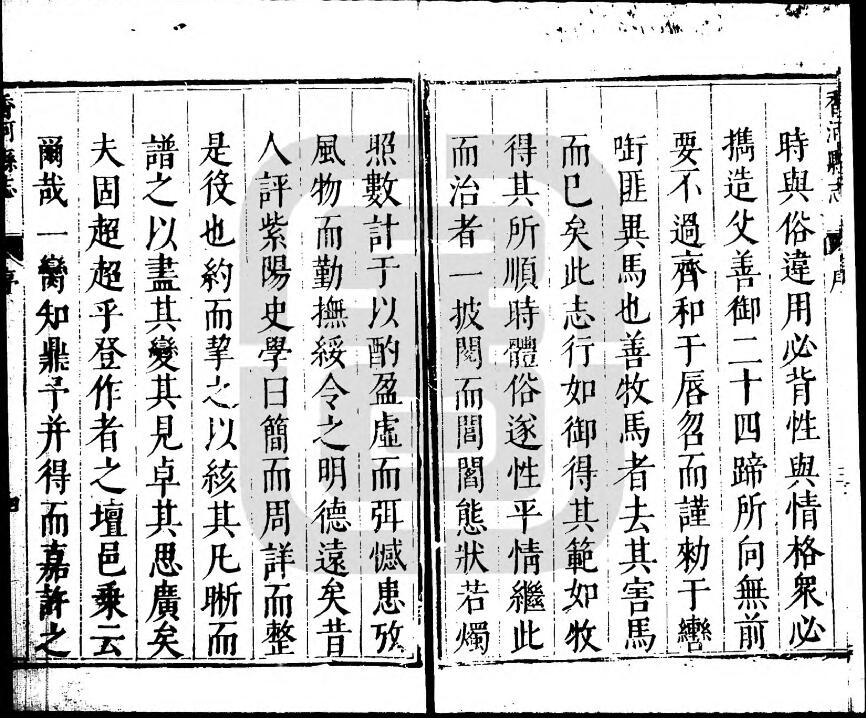 香河縣志
序
時與俗違用必背性與情格衆必
擕造父善御二十四蹄所向無前
要不過齊和于唇吻而謹勑于轡
銜匪異馬也善牧馬者去其害馬
而已矣此志行如御得其範如牧
得其所順時體俗遂性平情繼此
而治者一披閱而閭閻態狀若燭
照數計于以酌盈虛而弭憾患攷
風物而勤撫綏令之明德遠矣昔
人評紫陽史學曰簡而周詳而整
是役也約而摯之以綜其凡晰而
譜之以盡其變其見卓其思廣矣
夫固超超乎登作者之壇邑乘云
爾哉一臠知鼎予并得而嘉許之
香河縣志
序
四